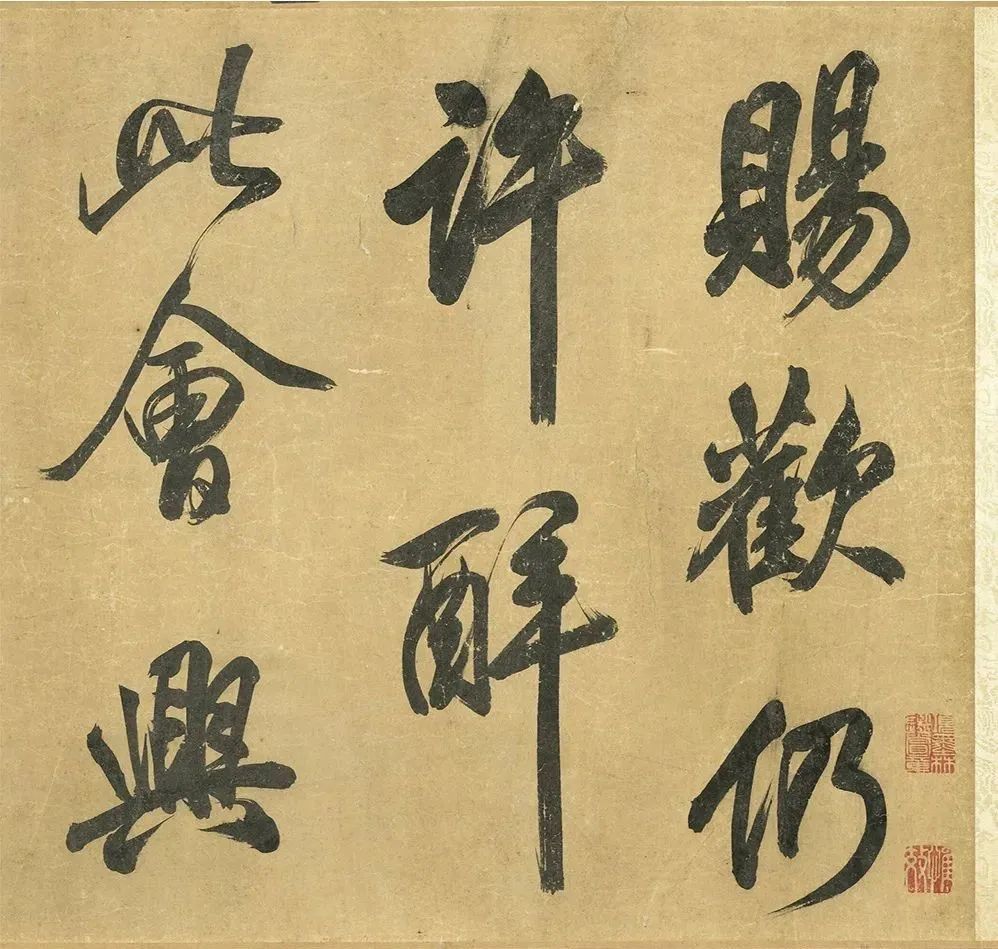 賜歡仍
許醉
此會興